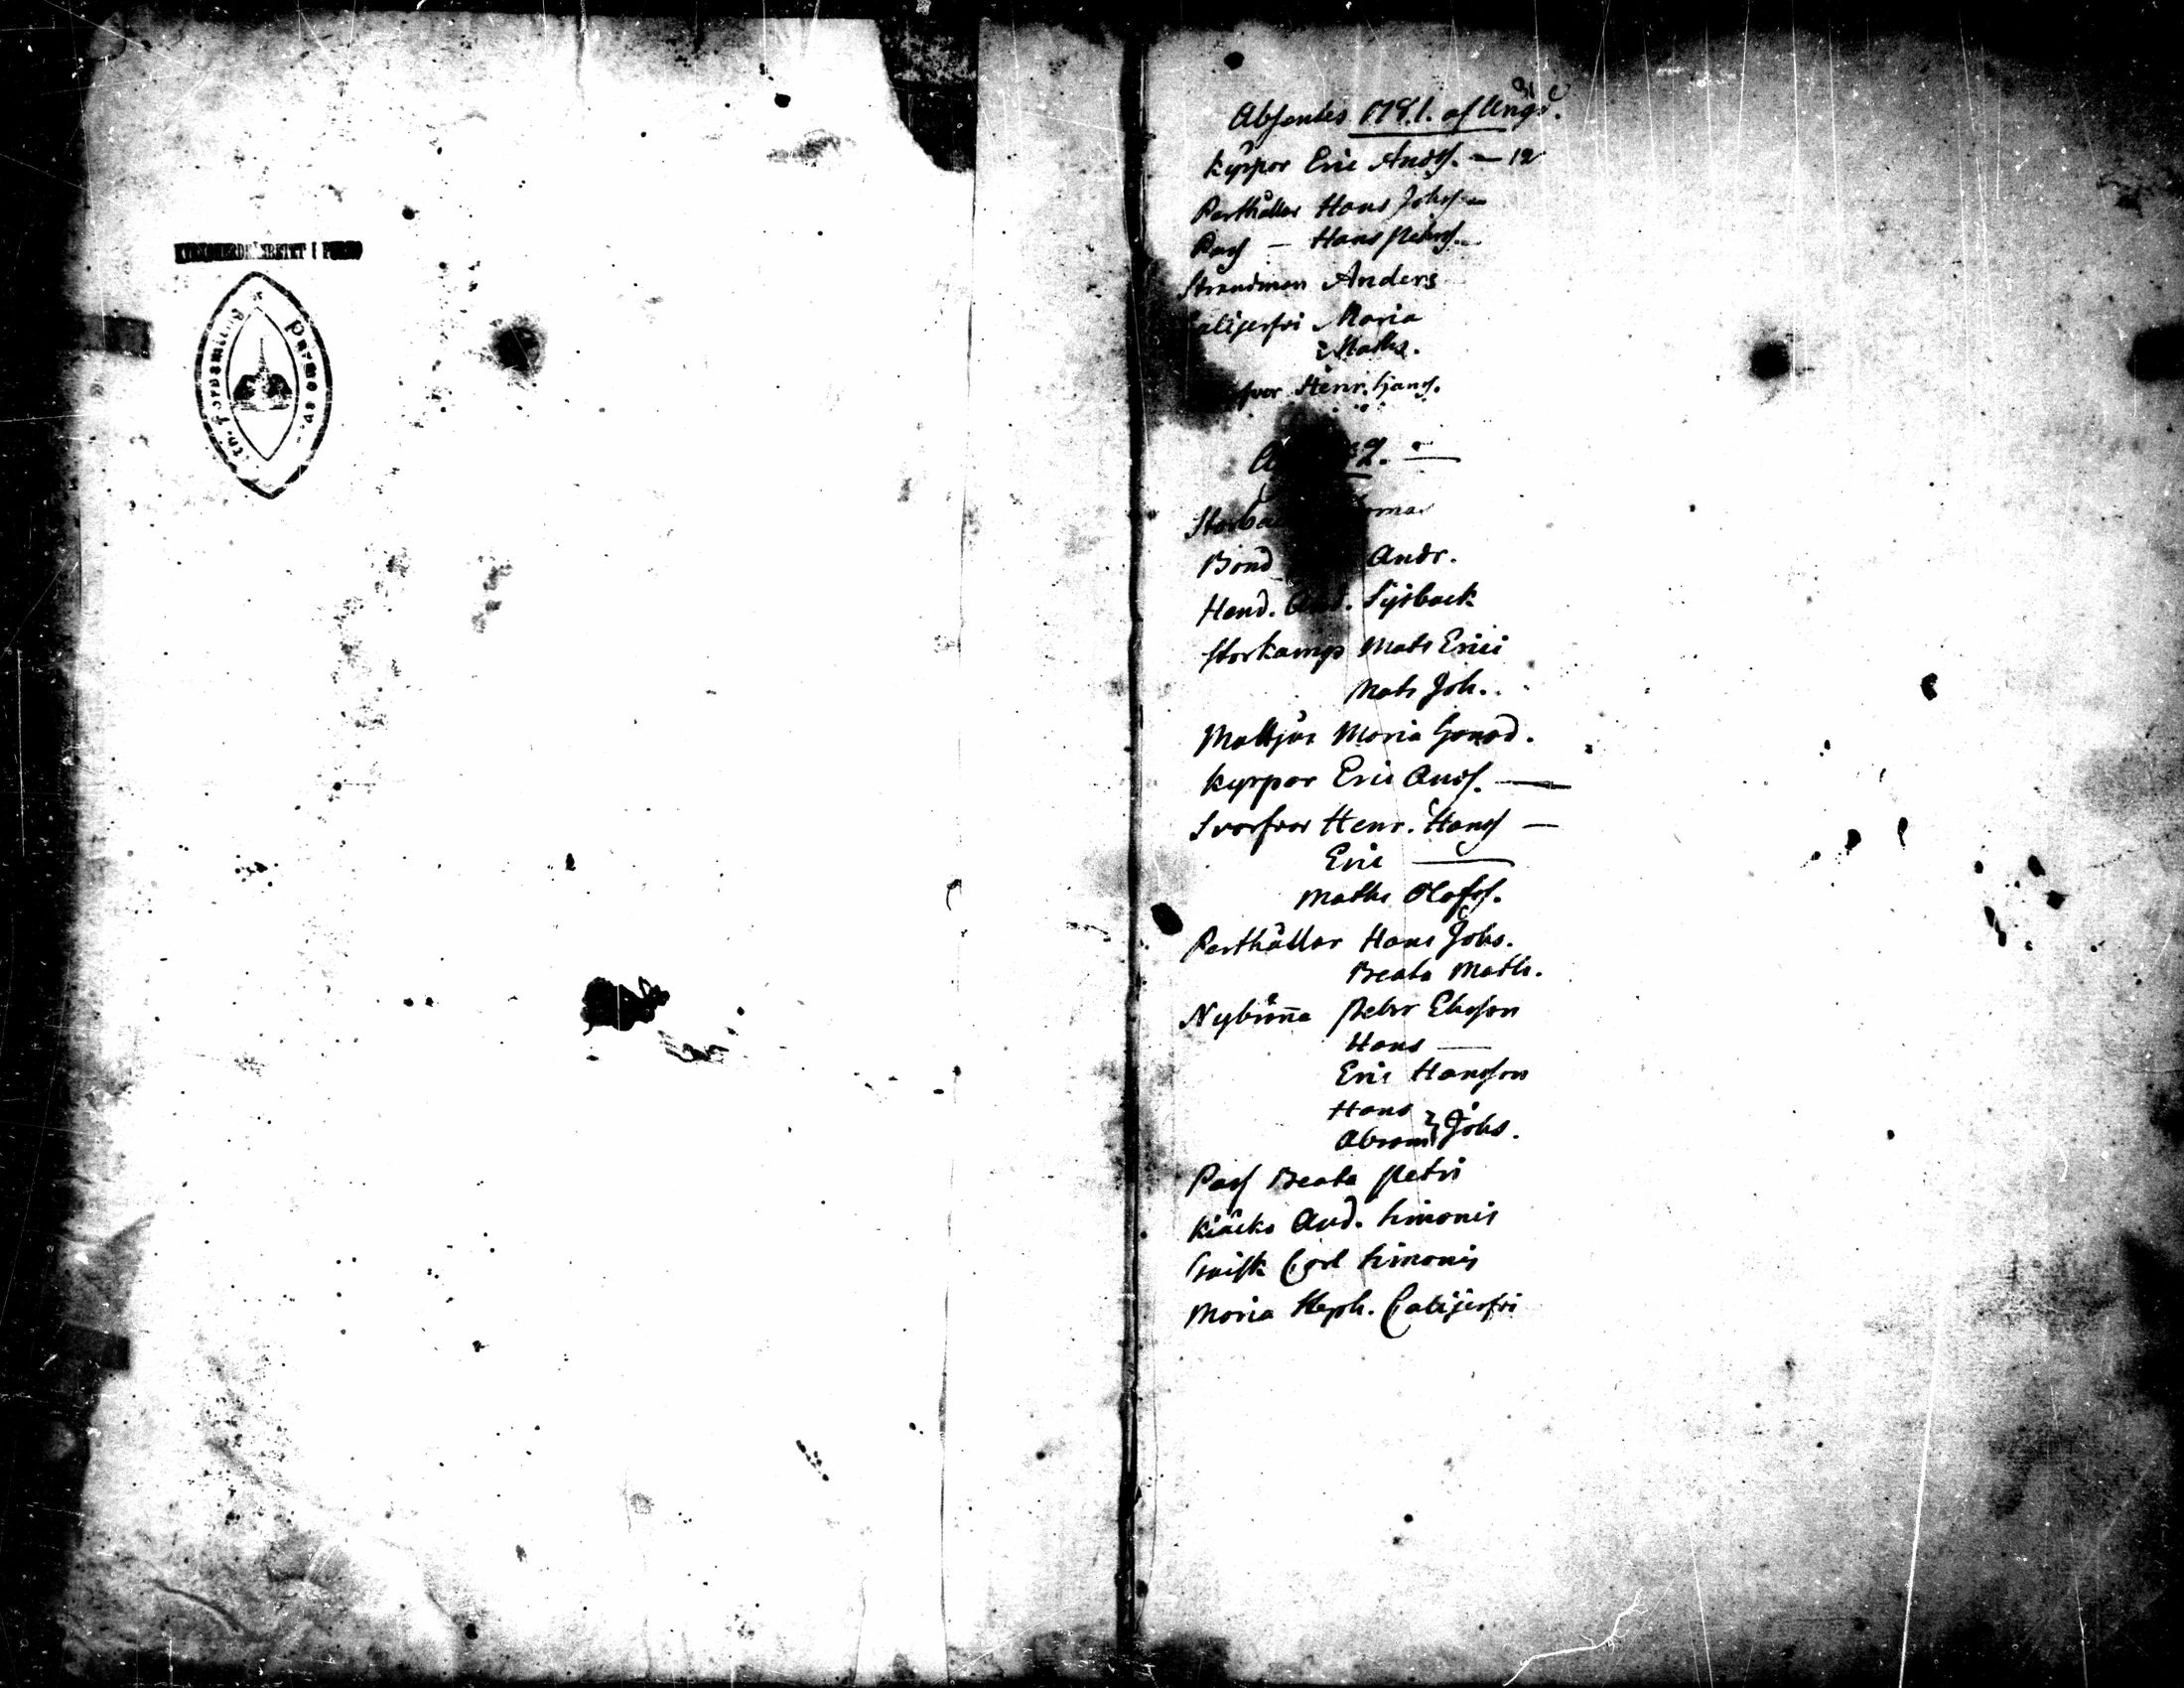 KYRKOHERDEÄMBETET I PURMO
Purmo sv.
ev. luth. församling
Absentes 1791. af Ungd.
Kyrpor Eric Andss. — 12
Perthåller Hans Johss —
Pass — Hans Petrss. —
Strandman Anders
Calijerfvi Maria
Maths.
Henr. Hanss.
2. —
Storba
Bond Andr.
Hend. And. Sysback
Storkamp Mats Erici
Mats Joh.
Maria
Kyrpor Eric Andss. —
Svarfvar Henr. Hanss —
Eric —
Maths Olofss.
Perthåller Hans Johs.
Beata Math.
Nybrånna Petr Ersson
Hans —
Eric Hansson
Hans
Abram } Johs.
Pass Beata Petri
And. Simonis
Carl Simonis
Maria Steph. Calijerfvi